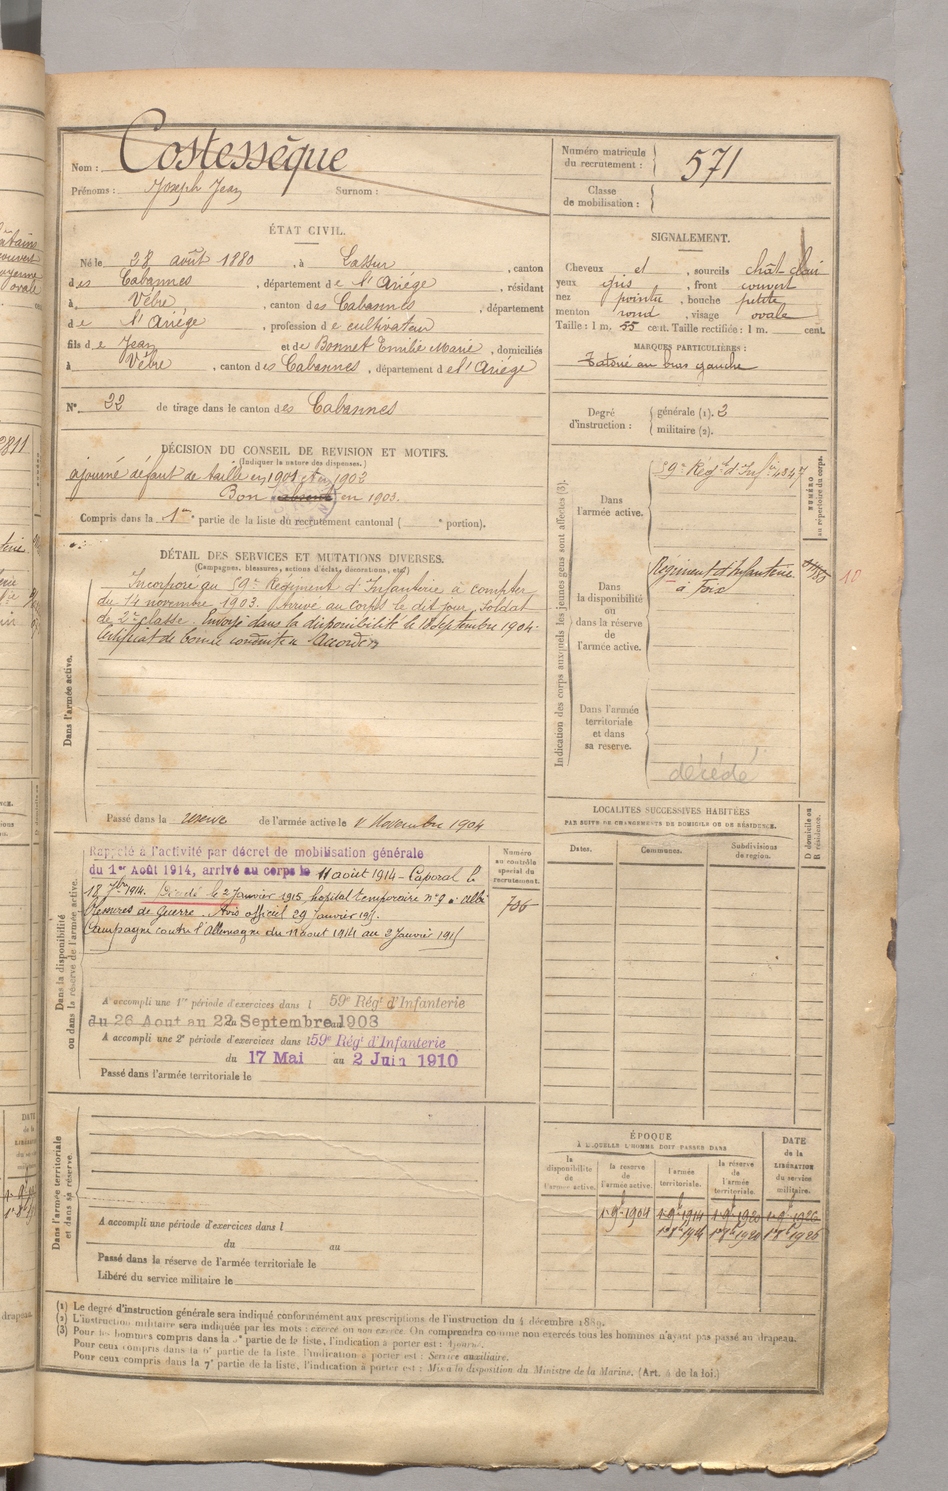 Nom : Costessèque
Prénoms : Joseph Jean Surnom :
Numéro matricule
du recrutement : 571
Classe
de mobilisation :
ÉTAT CIVIL.
Né le 28 août 1880, à Lassur, canton
des Cabannes, département de l'Ariége, résidant
à Vèbre, canton des Cabannes, département
de l'Ariége, profession de cultivateur
fils de Jean et de Bonnet Emilie Marie, domiciliés
à Vèbre, canton des Cabannes, département de l'Ariége
N° 22 de tirage dans le canton des Cabannes
SIGNALEMENT.
Cheveux et, sourcils chât-clair
yeux gris, front couvert
nez pointu, bouche petite
menton rond, visage ovale
Taille : 1 m. 55 cent. Taille rectifiée : 1 m. cent.
MARQUES PARTICULIÈRES :
Tatoué au bras gauche
Degré
d'instruction :
générale (1). 3
militaire (2).
DÉCISION DU CONSEIL DE REVISION ET MOTIFS.
(Indiquer la nature des dispenses.)
ajourné défaut de taille en 1901 et en 1902
Bon absent en 1903.
Compris dans la 1re partie de la liste du recrutement cantonal ( e portion).
DÉTAIL DES SERVICES ET MUTATIONS DIVERSES.
(Campagnes, blessures, actions d'éclat, décorations, etc.)
Dans l'armée active.
Incorporé au 59e Régiment d'Infanterie à compter
du 14 novembre 1903. Arrivé au corps le dit jour, soldat
de 2e classe. Envoyé dans la disponibilité le 18 septembre 1904-
Certificat de bonne conduite "Accordé"
Passé dans la réserve de l'armée active le 1r Novembre 1904
Indication des corps auxquels les jeunes gens sont affectés (3).
NUMÉRO
au répertoire du corps.
Dans
l'armée active.
59e Régt d'Infie 4347
Dans
la disponibilité
ou
dans la réserve
de
l'armée active.
Régiment d'Infanterie
à Foix
10
Dans l'armée
territoriale
et dans
sa réserve.
décédé
Dans la disponibilité
ou dans la réserve de l'armée active.
Rappelé à l'activité par décret de mobilisation générale
du 1er Août 1914, arrivé au corps le 11 août 1914 - Caporal le
18 7bre 1914. Décédé le 2 Janvier 1915 hopital temporaire n° 9 à Albi
Blessures de Guerre. Avis officiel 29 Janvier 1915.
Campagne contre l'Allemagne du 11 aout 1914 au 2 Janvier 1915
Numéro
au contrôle
spécial du
recrutement.
A accompli une 1re période d'exercices dans l 59e Régt d'Infanterie
du 26 Aout au 22 Septembre 1908
A accompli une 2e période d'exercices dans l 59e Régt d'Infanterie
du 17 Mai au 2 Juin 1910
Passé dans l'armée territoriale le
LOCALITÉS SUCCESSIVES HABITÉES
PAR SUITE DE CHANGEMENTS DE DOMICILE OU DE RÉSIDENCE.
Dates. Communes. Subdivisions
de région.
D domicile ou
R résidence.
Dans l'armée territoriale
et dans sa réserve.
A accompli une période d'exercices dans l
du au
Passé dans la réserve de l'armée territoriale le
Libéré du service militaire le
ÉPOQUE
À LAQUELLE L'HOMME DOIT PASSER DANS
la
disponibilité
de
l'armée active.
la réserve
de
l'armée active.
l'armée
territoriale.
la réserve
de
l'armée
territoriale.
DATE
de la
LIBÉRATION
du service
militaire.
1r 9bre 1904 1r 9bre 1914 1r 9bre 1920 1r 9bre 1926
(1) Le degré d'instruction générale sera indiqué conformément aux prescriptions de l'instruction du 4 décembre 1889.
(2) L'instruction militaire sera indiquée par les mots : exercé ou non exercé. On comprendra comme non exercés tous les hommes n'ayant pas passé au drapeau.
(3) Pour les hommes compris dans la 5e partie de la liste, l'indication à porter est : Ajourné.
Pour ceux compris dans la 6e partie de la liste, l'indication à porter est : Service auxiliaire.
Pour ceux compris dans la 7e partie de la liste, l'indication à porter est : Mis à la disposition du Ministre de la Marine. (Art. 4 de la loi.)